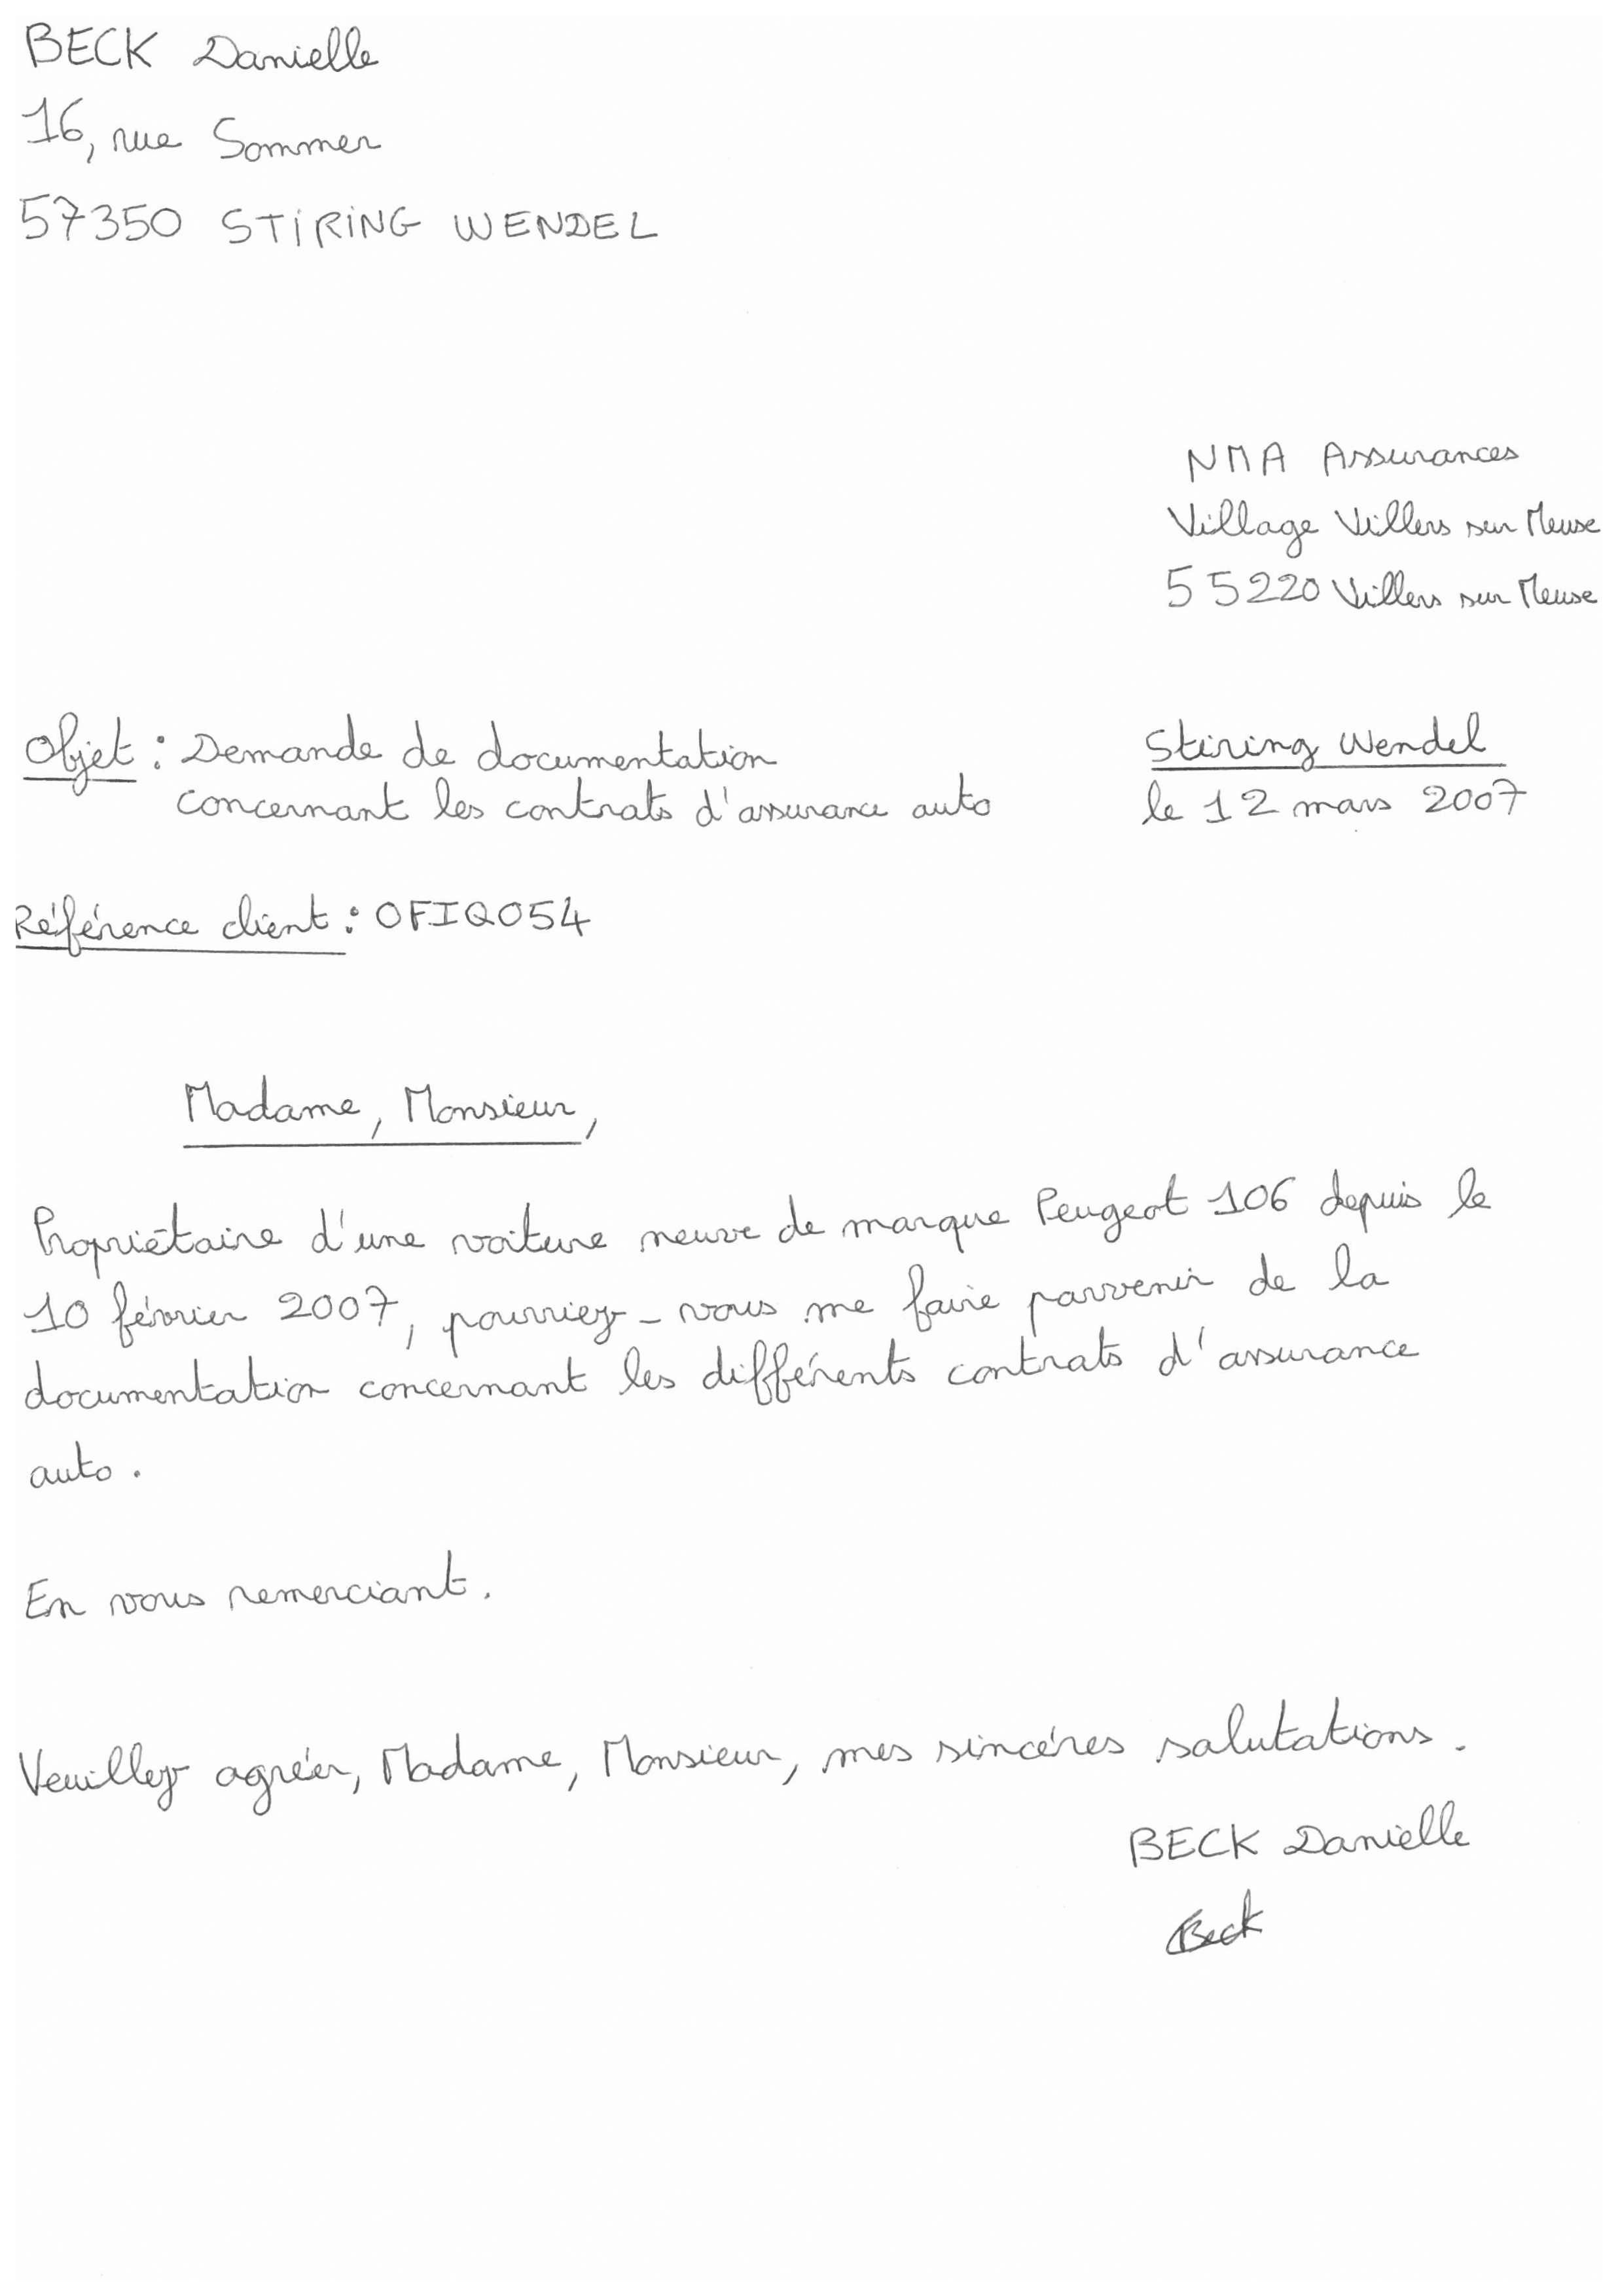 BECK Danielle
16, rue Sommer
57350 STIRING WENDEL
NMA Assurances
Village Villers sur Meuse
55220 Villers sur Meuse
Objet : Demande de documentation
concernant les contrats d'assurance auto
Stiring Wendel
le 12 mars 2007
Référence client : OFIQ054
Madame, Monsieur,
Propriétaire d'une voiture neuve de marque Peugeot 106 depuis le
10 février 2007, pourriez-vous me faire parvenir de la
documentation concernant les différents contrats d'assurance
auto.
En vous remerciant.
Veuillez agréer, Madame, Monsieur, mes sincéres salutations.
BECK Danielle
Beck